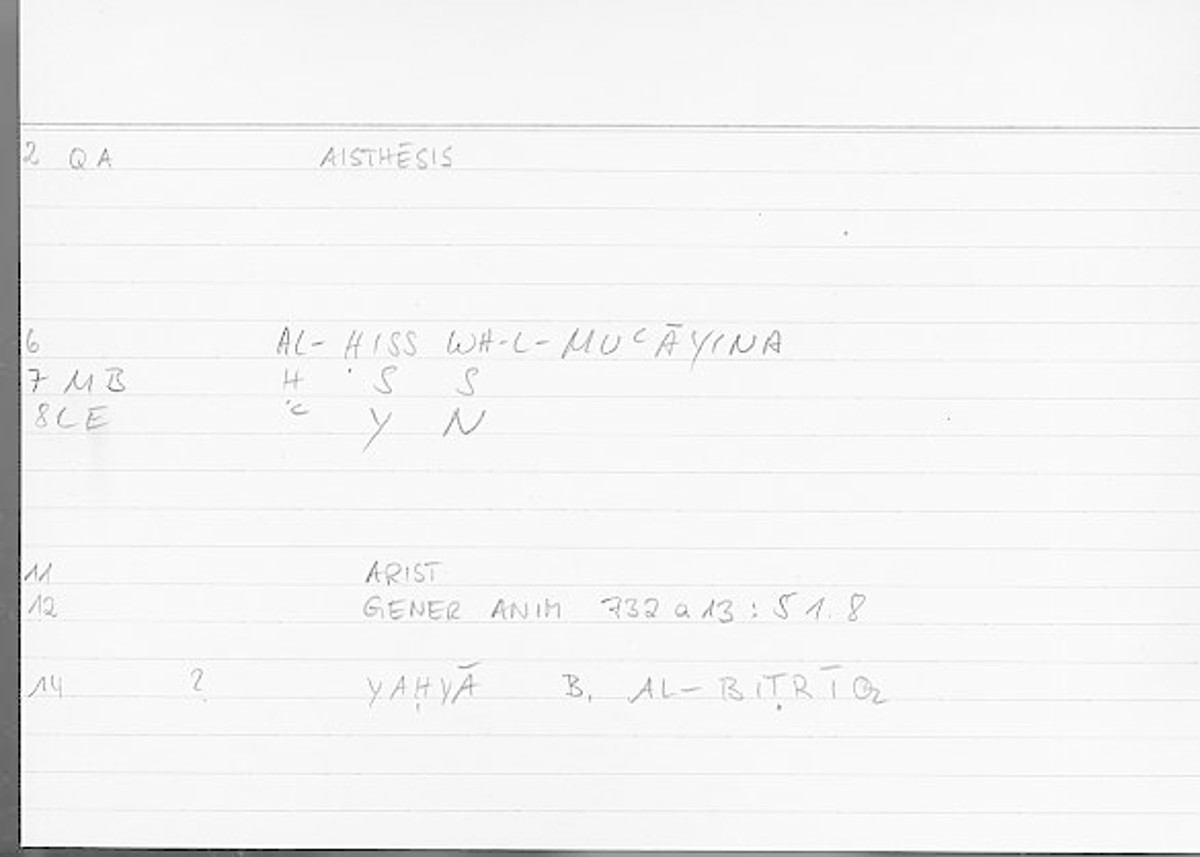 2 QA AISTHĒSIS
6 AL-ḤISS WA-L-MUʿĀYINA
7 MB H S S
8 CE ʿ Y N
11 ARIST
12 GENER ANIM 732 a 13 : 51.8
14 ? YAḤYĀ B. AL-BIṬRĪQ